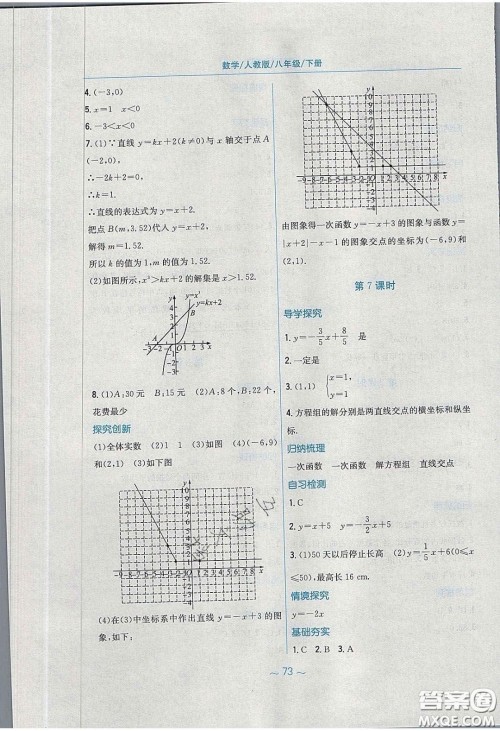 数学/人教版/八年级/下册
4.(-3,0)
5.x=1 x<0
6.-3<x<0
7.(1)∵直线y=kx+2(k≠0)与x轴交于点A
(-2,0),
∴-2k+2=0,
∴k=1.
∴直线的表达式为y=x+2.
把点B(m,3.52)代入y=x+2,
解得m=1.52.
所以k的值为1,m的值为1.52.
(2)如图所示,x³>kx+2的解集是x>1.52.
y=x³
y=kx+2
8.(1)A:30元 B:15元 (2)A:8个,B:22个,
花费最少
探究创新
(1)全体实数 (2)1 1 (3)如图 (4)(-6,9)
和(2,1) (3)如下图
(4)在(3)中坐标系中作出直线y=-x+3的图
象,如下:
由图象得一次函数y=-x+3的图象与函数y=
|x+2|-x-1的图象交点的坐标为(-6,9)和
(2,1).
第7课时
导学探究
1.y=-3/5x+8/5 是
2.一定是
3.(1,1) {x=1, y=1
4.方程组的解分别是两直线交点的横坐标和纵坐
标.
归纳梳理
一次函数 一次函数 解方程组 直线交点
自习检测
1.C
2.y=x+5 y=-3/2x+5
3.(1)50天以后停止长高 (2)y=1/5x+6(0≤x
≤50),最高长16 cm.
情境探究
y=-2x
基础夯实
1.C 2.B 3.A
~73~
答案圈
MXQE.COM